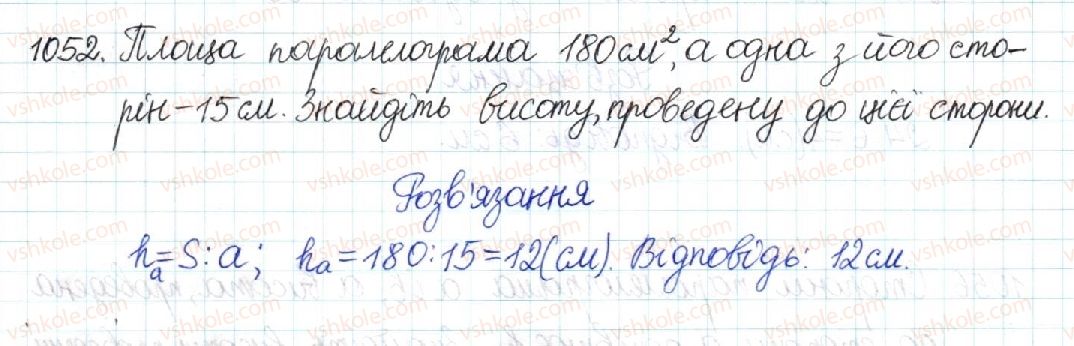 1052. Площа паралелограма 180 см², а одна з його сто-
рін - 15 см. Знайдіть висоту, проведену до цієї сторони.
Розв'язання
hₐ = S : a; hₐ = 180 : 15 = 12 (см). Відповідь: 12 см.